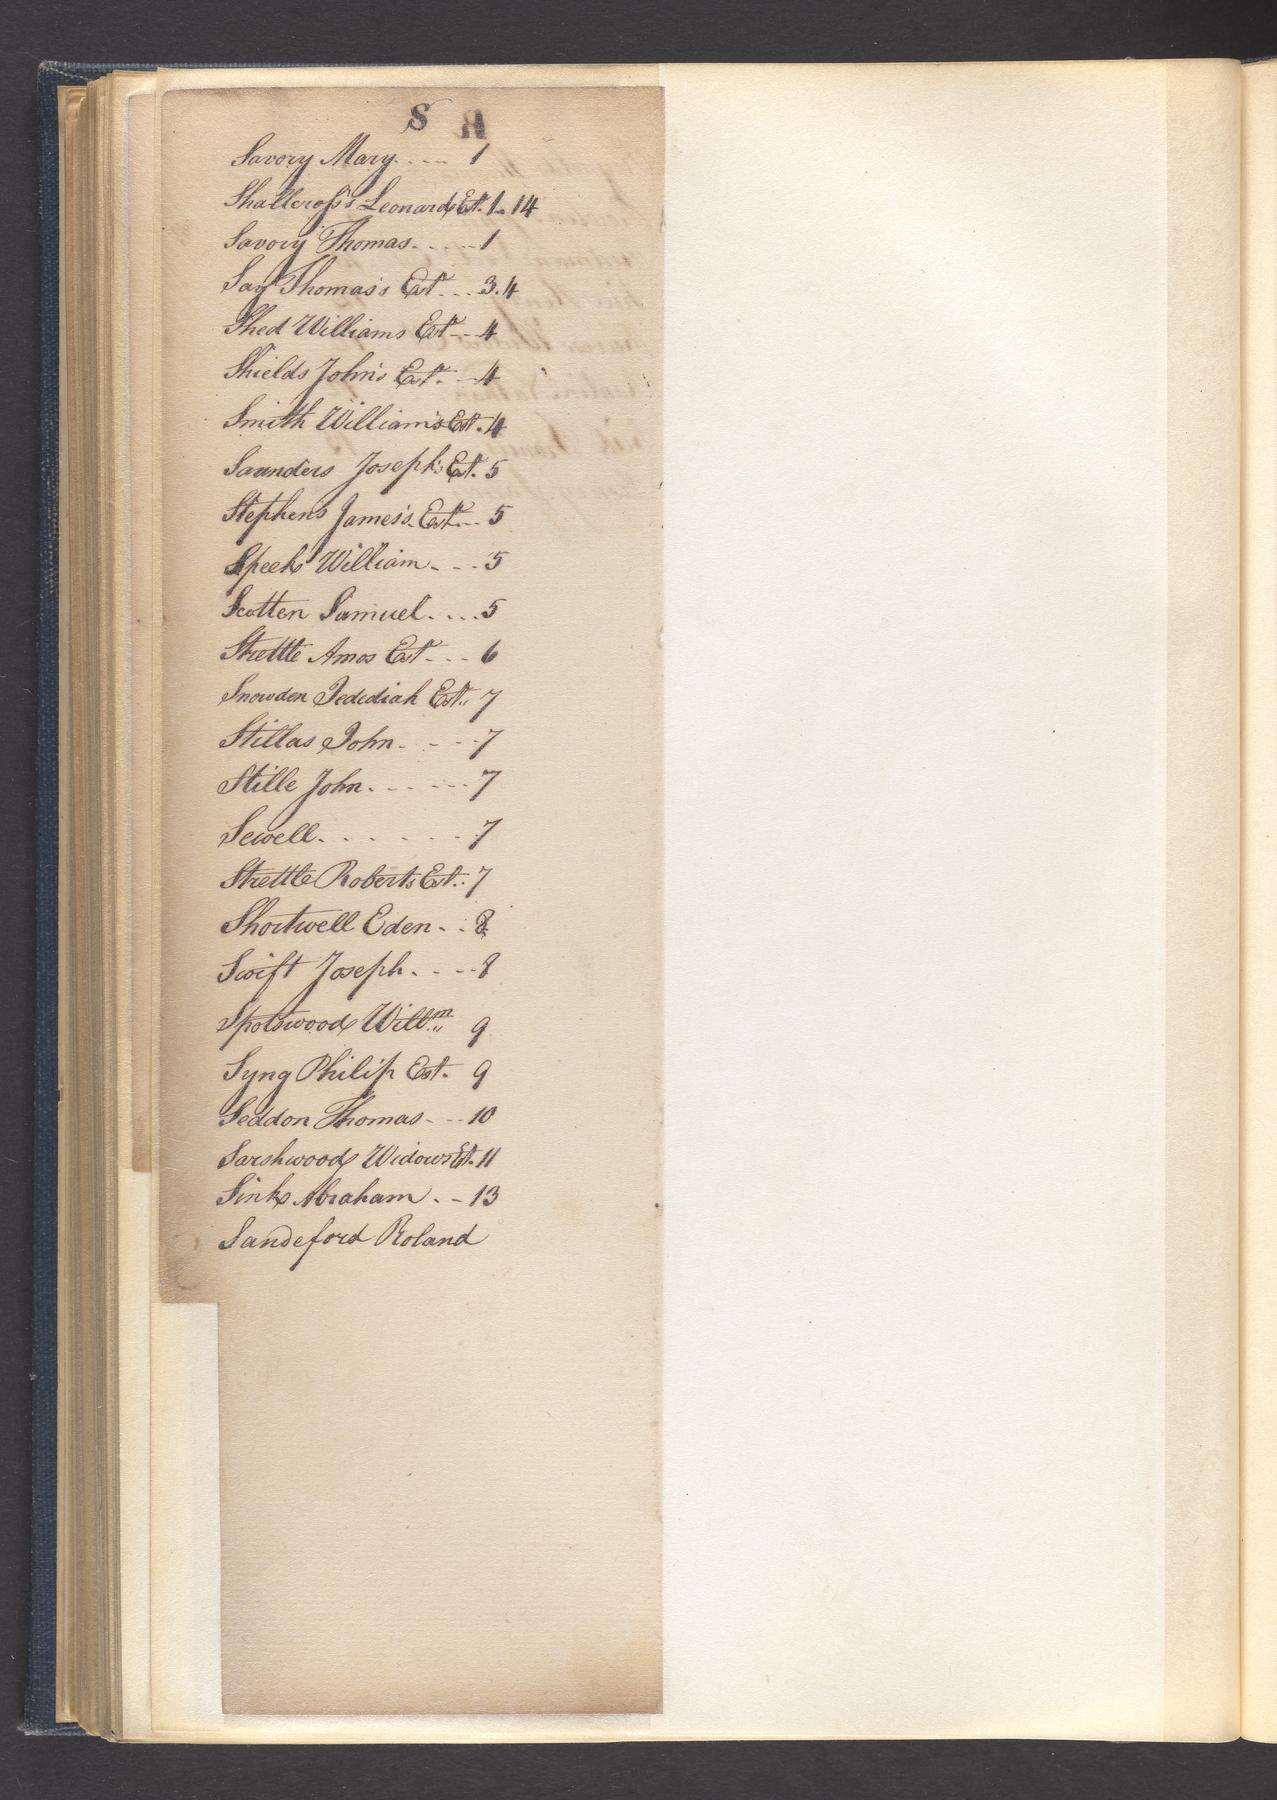 S R
Savory Mary .... 1
Shallcross's Leonard Est. 1. 14
Savory Thomas .... 1
Say Thomas's Est ... 3.4
Shed Williams Est -- 4
Shields John's Est. - 4
Smith William's Est. 4
Saunders Joseph's Est. 5
Stephens James's Est... 5
Speek William - - - 5
Scotten Samuel .... 5
Strettle Amos Est - - - 6
Snowden Jedediah Est. 7
Stillas John - - - - 7
Stille John . - - - - - 7
Sewell . - - - - - 7
Strettle Roberts Est. . 7
Shortwell Eden - . 8
Swift Joseph . - - - 8
Spotswood Willm 9
Syng Philip Est. 9
Seddon Thomas - - - 10
Sarshwood Widows Est. 11
Sink Abraham . - 13
Sandeford Roland